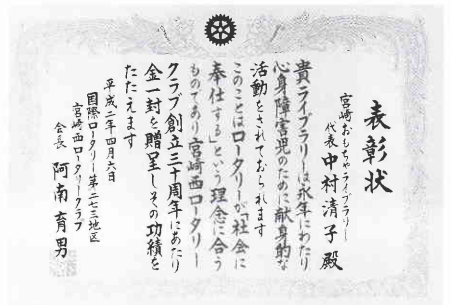 表彰状
宮崎おもちゃライブラリー
代表 中村清子殿
貴ライブラリーは永年にわたり
心身障害児のために献身的な
活動をされておられます
このことはロータリーが「社会に
奉仕する」という理念に合う
ものであり宮崎西ロータリー
クラブ創立三十周年にあたり
金一封を贈呈しその功績を
たたえます
平成二年四月六日
国際ロータリー第二七三地区
宮崎西ロータリークラブ
会長 阿南育男